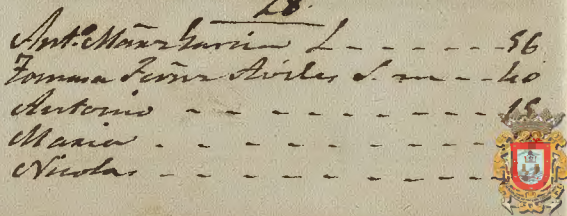 28.
Ant.º Mãnz Garcia L - - - - - - 56
Tomasa Ferrer Aviles S. m - - 40
Antonio - - - - - - - - - 15
Maria - - - - - - - - -
Nicolas - - - - - - - - -